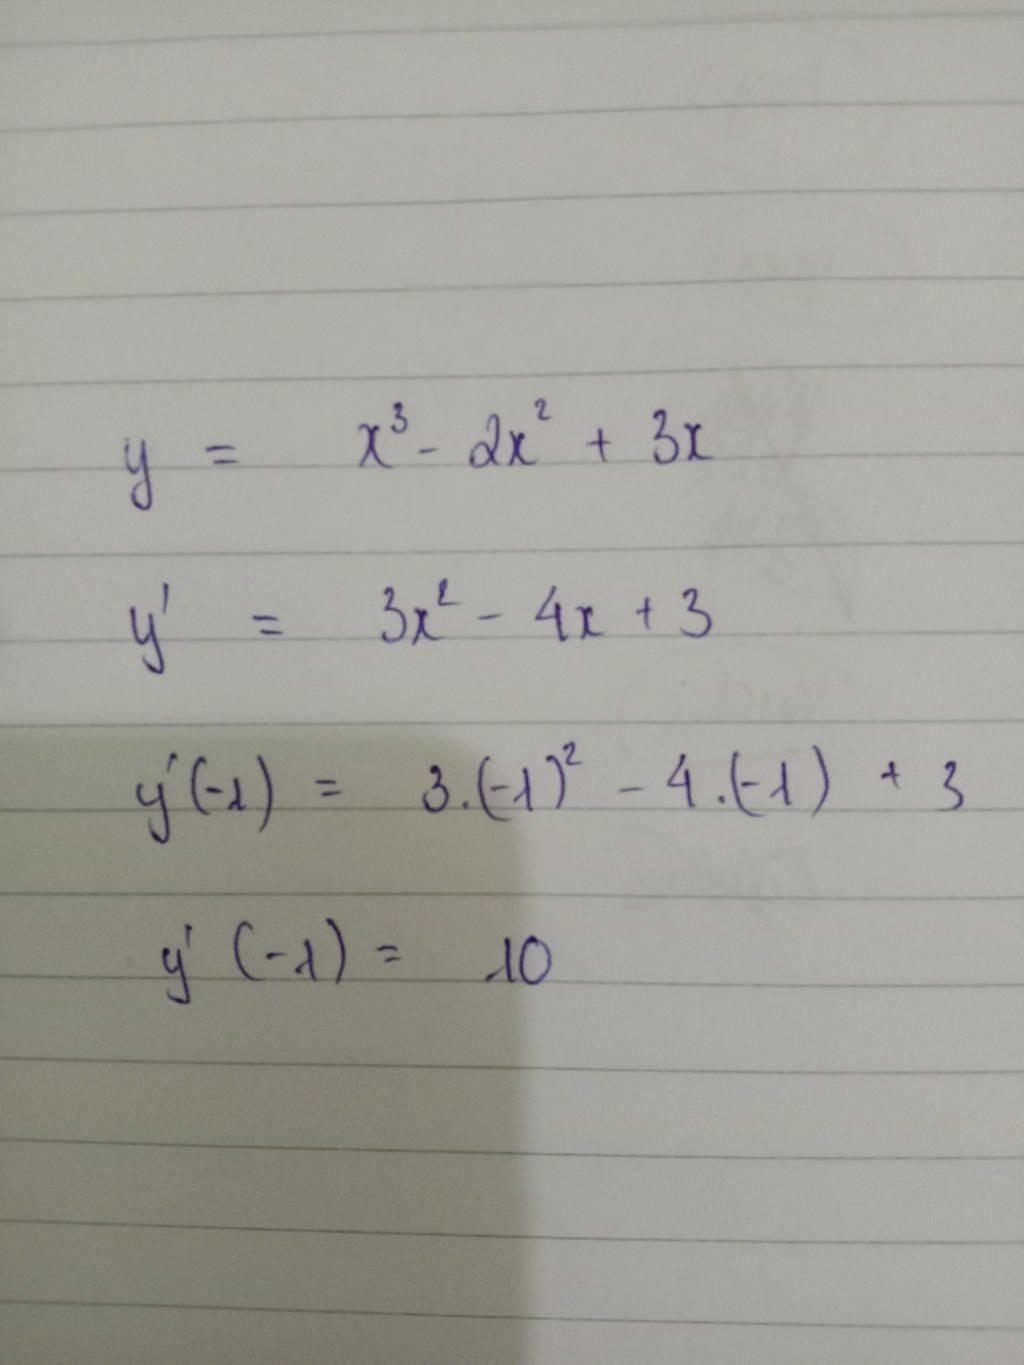 y = x³ - 2x² + 3x
y' = 3x² - 4x + 3
y'(-1) = 3.(-1)² - 4.(-1) + 3
y' (-1) = 10